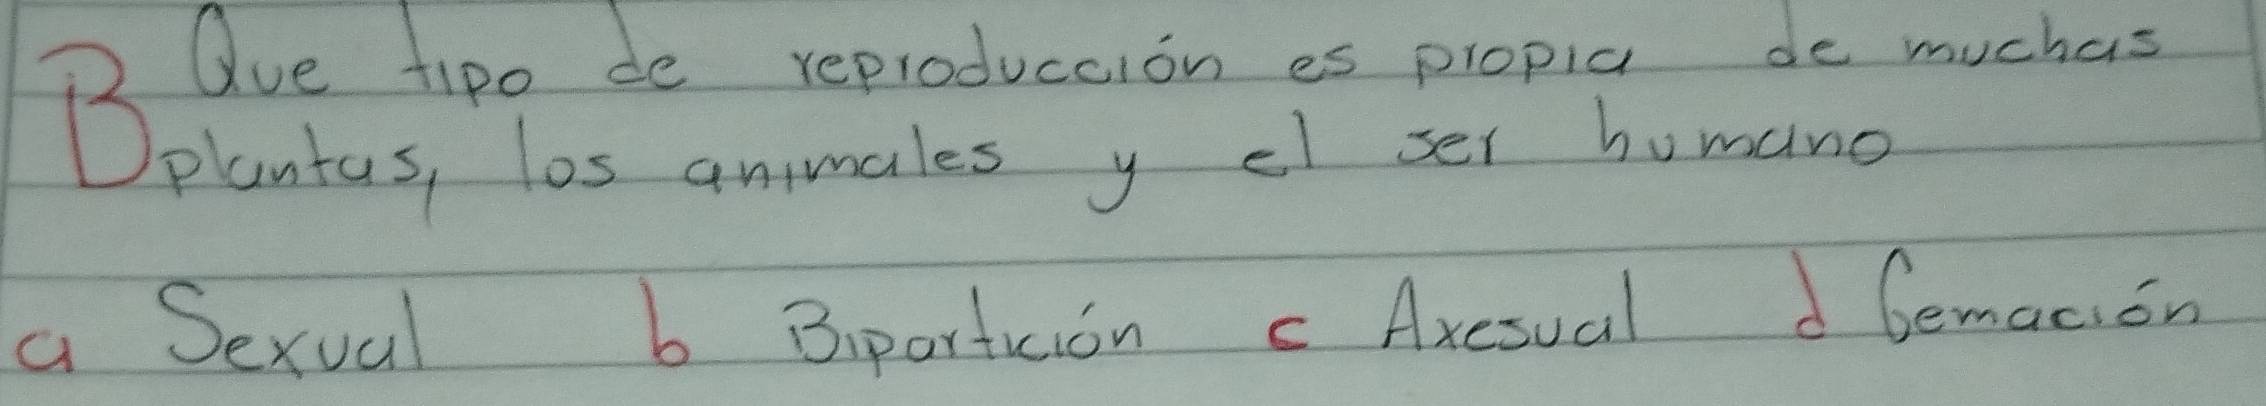 B Que tipo de reproducción es propia de muchas
plantas, los animales y el ser humano
a Sexual b Bipartición c Axesual d Gemación